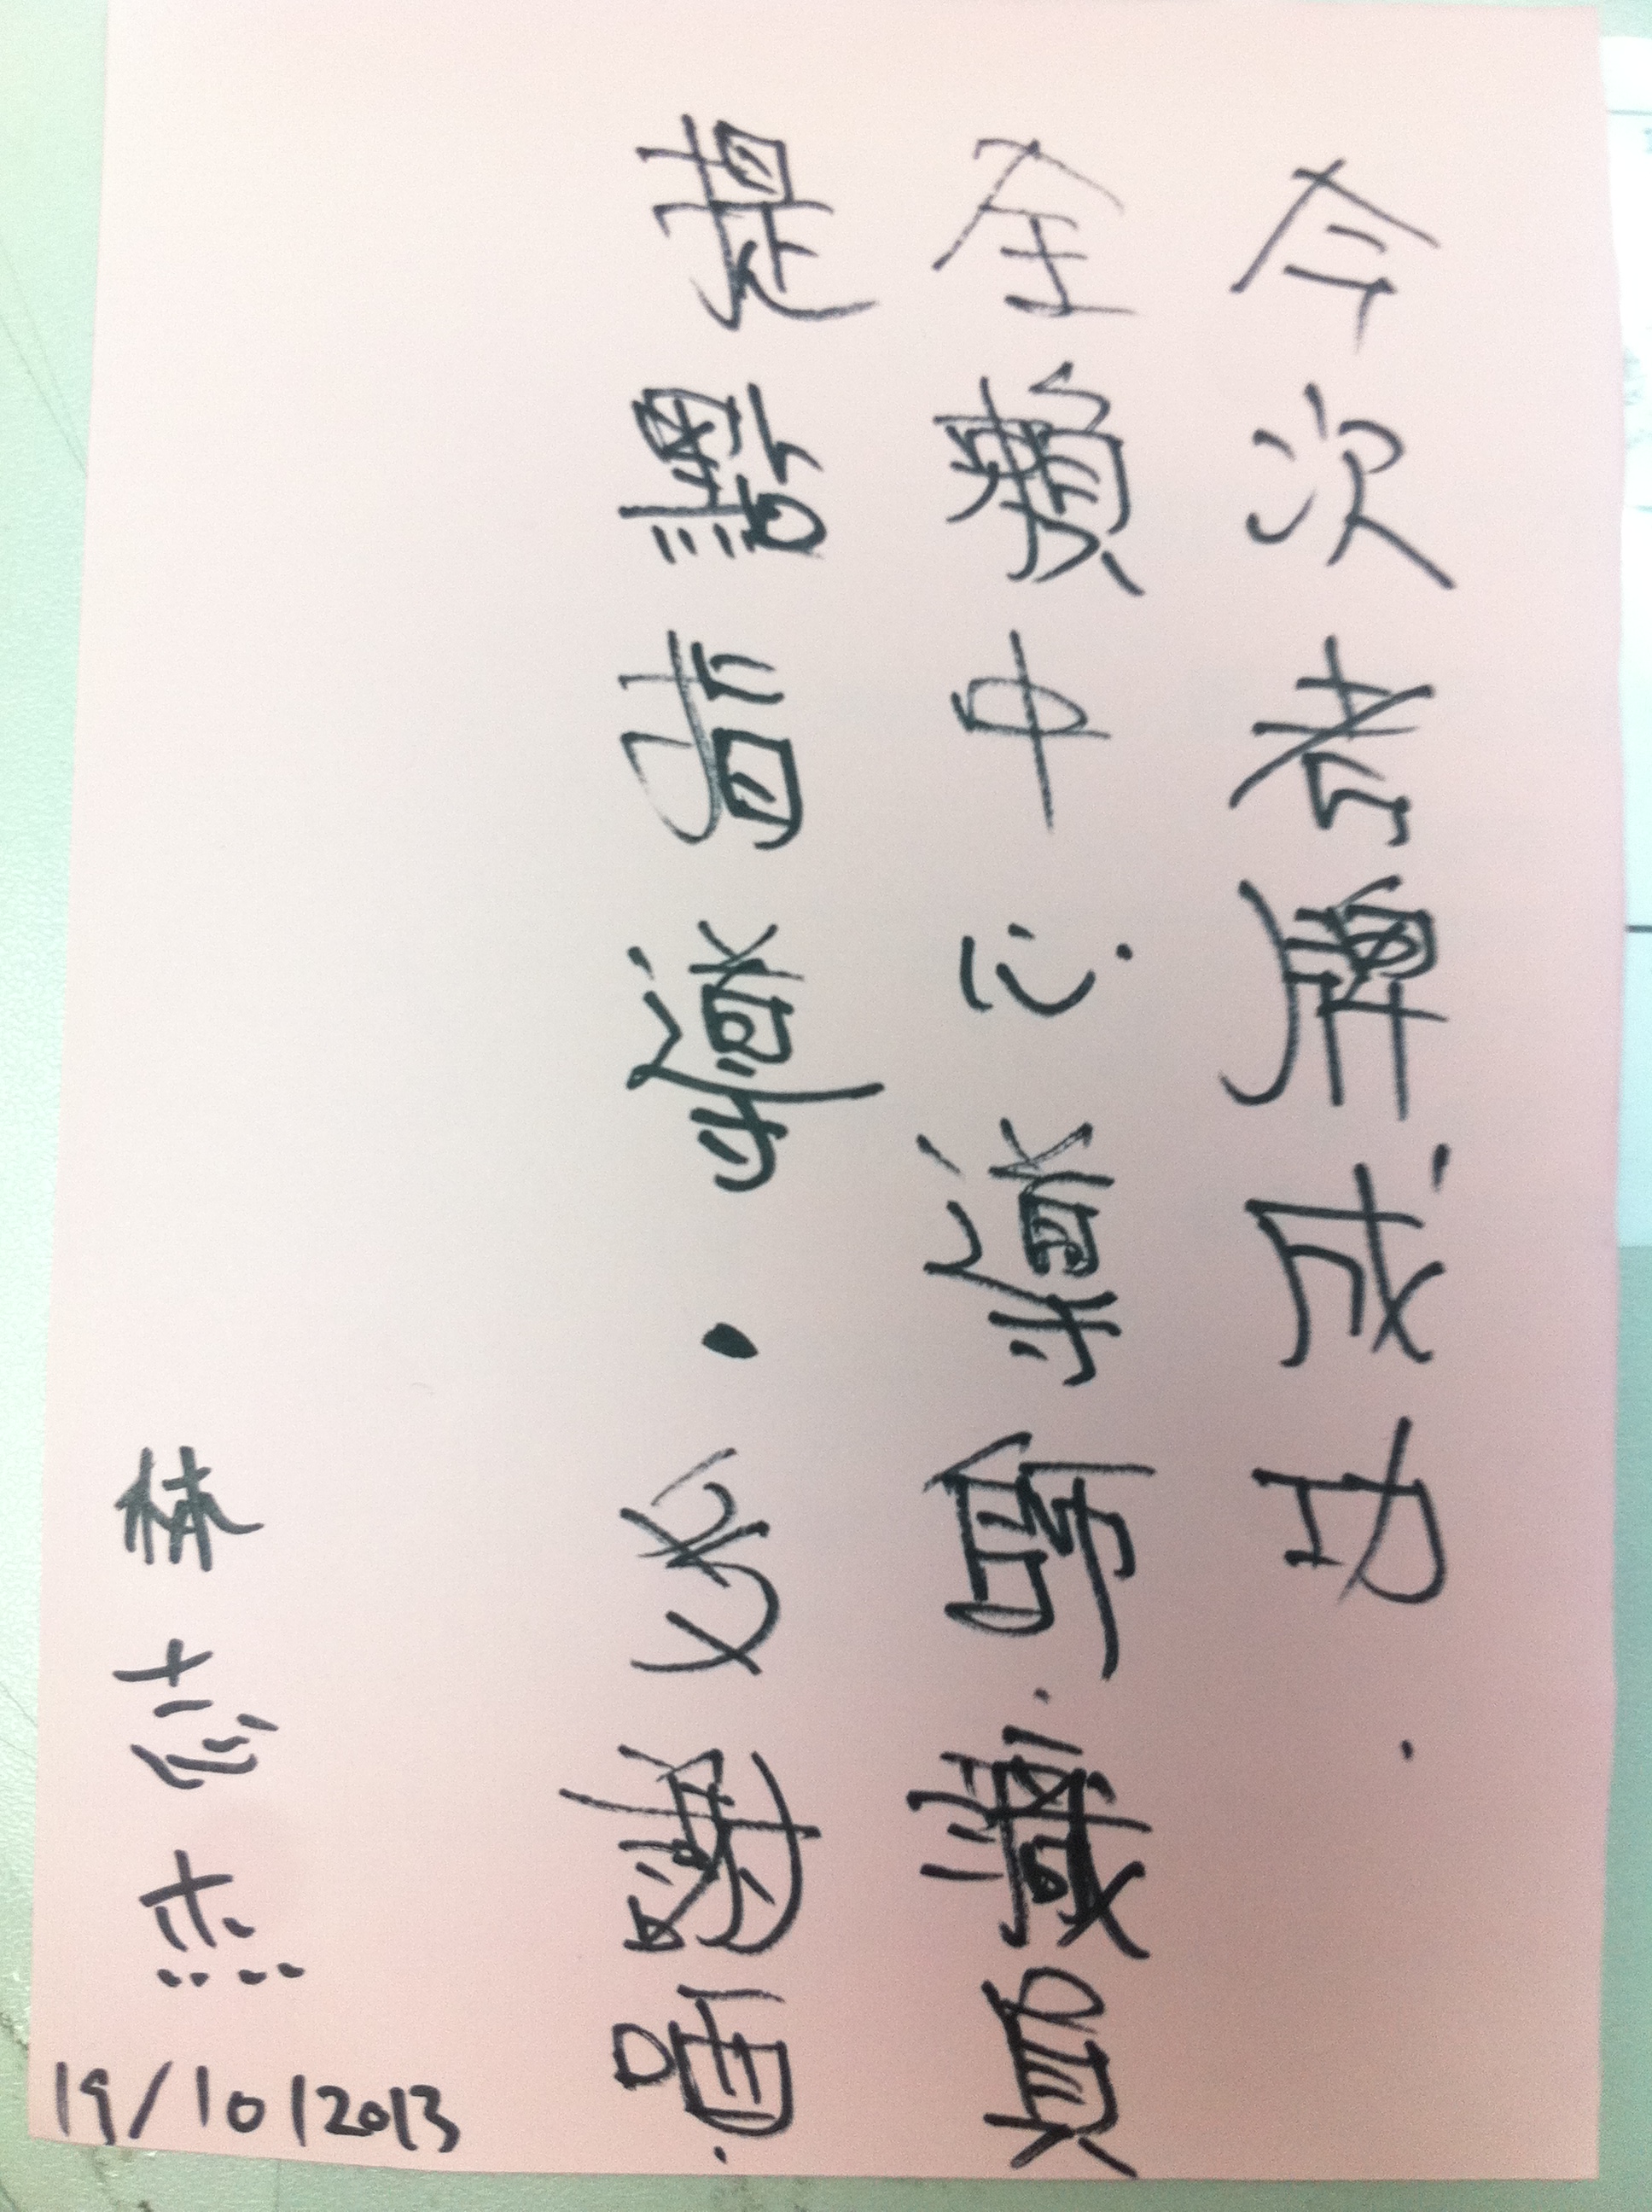 今次考牌成功.
全賴中心導師.職員
提點指導.
林 杰
19/10/2013